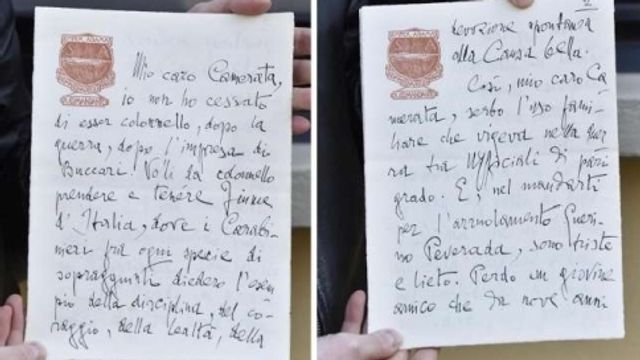 Mio caro Camerata,
io non ho cessato
di esser colonnello, dopo la
guerra, dopo l'impresa di
Buccari. Volli da colonnello
prendere e tenére Fiume
d'Italia, dove i Carabi-
nieri fra ogni specie di
sopraggiunti diedero l'esem-
pio della disciplina, del co-
raggio, della lealtà, della
2
devozione spontanea
alla Causa bella.
Così, mio caro Ca
merata, serbo l'uso fami-
liare che vigeva nella guer
ra tra Uffiziali di pari
grado. E, nel mandarti
per l'arruolamento Gueri-
no Peverada, sono triste
e lieto. Perdo un giovine
amico che da nove anni